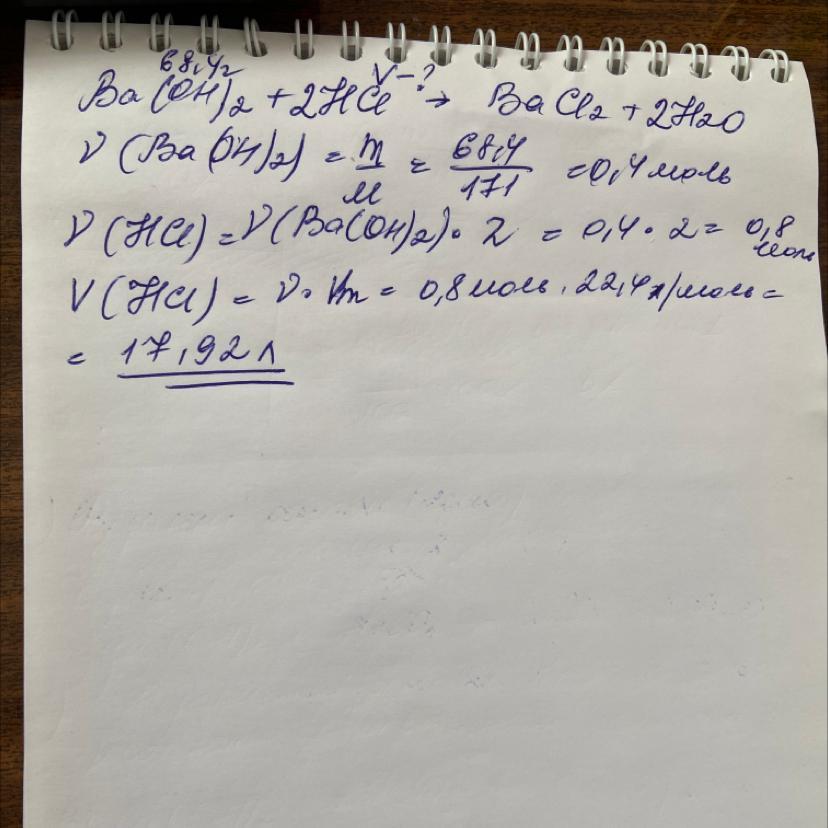 68,4г V-?
Ba(OH)2 + 2HCl → BaCl2 + 2H2O
ν (Ba(OH)2) = m/M = 68,4/171 = 0,4 моль
ν (HCl) = ν(Ba(OH)2) · 2 = 0,4 · 2 = 0,8 моль
V (HCl) = ν · Vm = 0,8 моль · 22,4 л/моль =
= 17,92 л